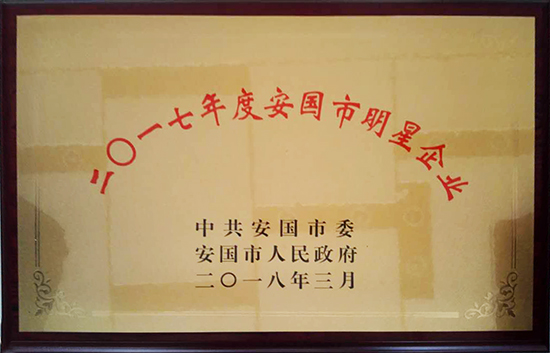 二〇一七年度安国市明星企业
中共安国市委
安国市人民政府
二〇一八年三月